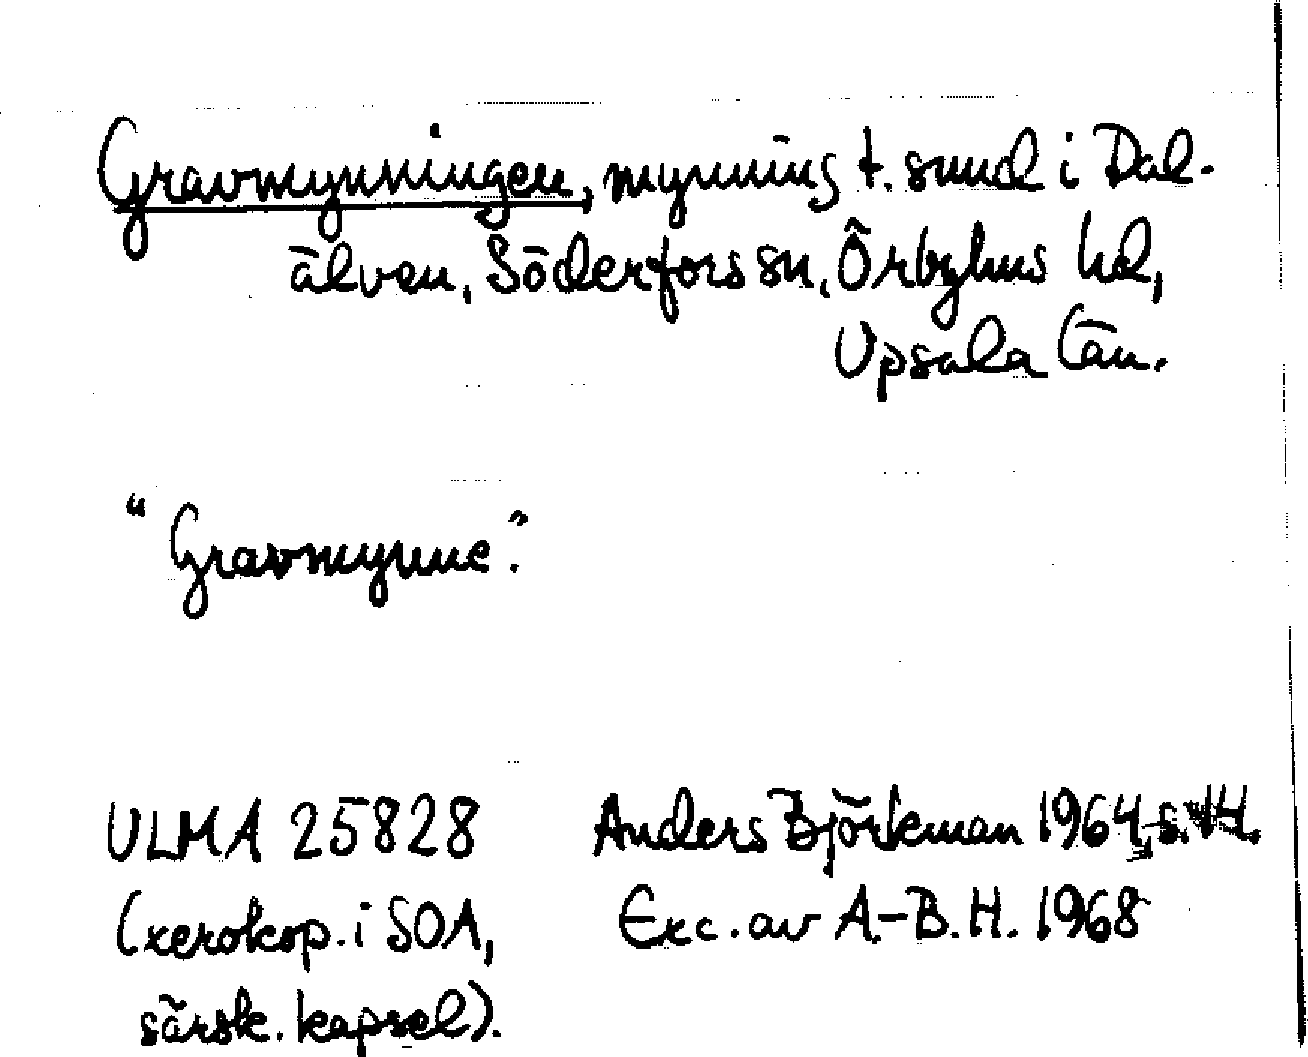 Gravmynningen, mynning t. sund i Dal-
älven, Söderfors sn, Örbyhus hd,
Upsala län.
"Gravmynne".
ULMA 25828
(xerokop. i SOA,
särsk. kapsel).
Anders Björkman 1964, s. 14.
Exc. av A.-B. H. 1968